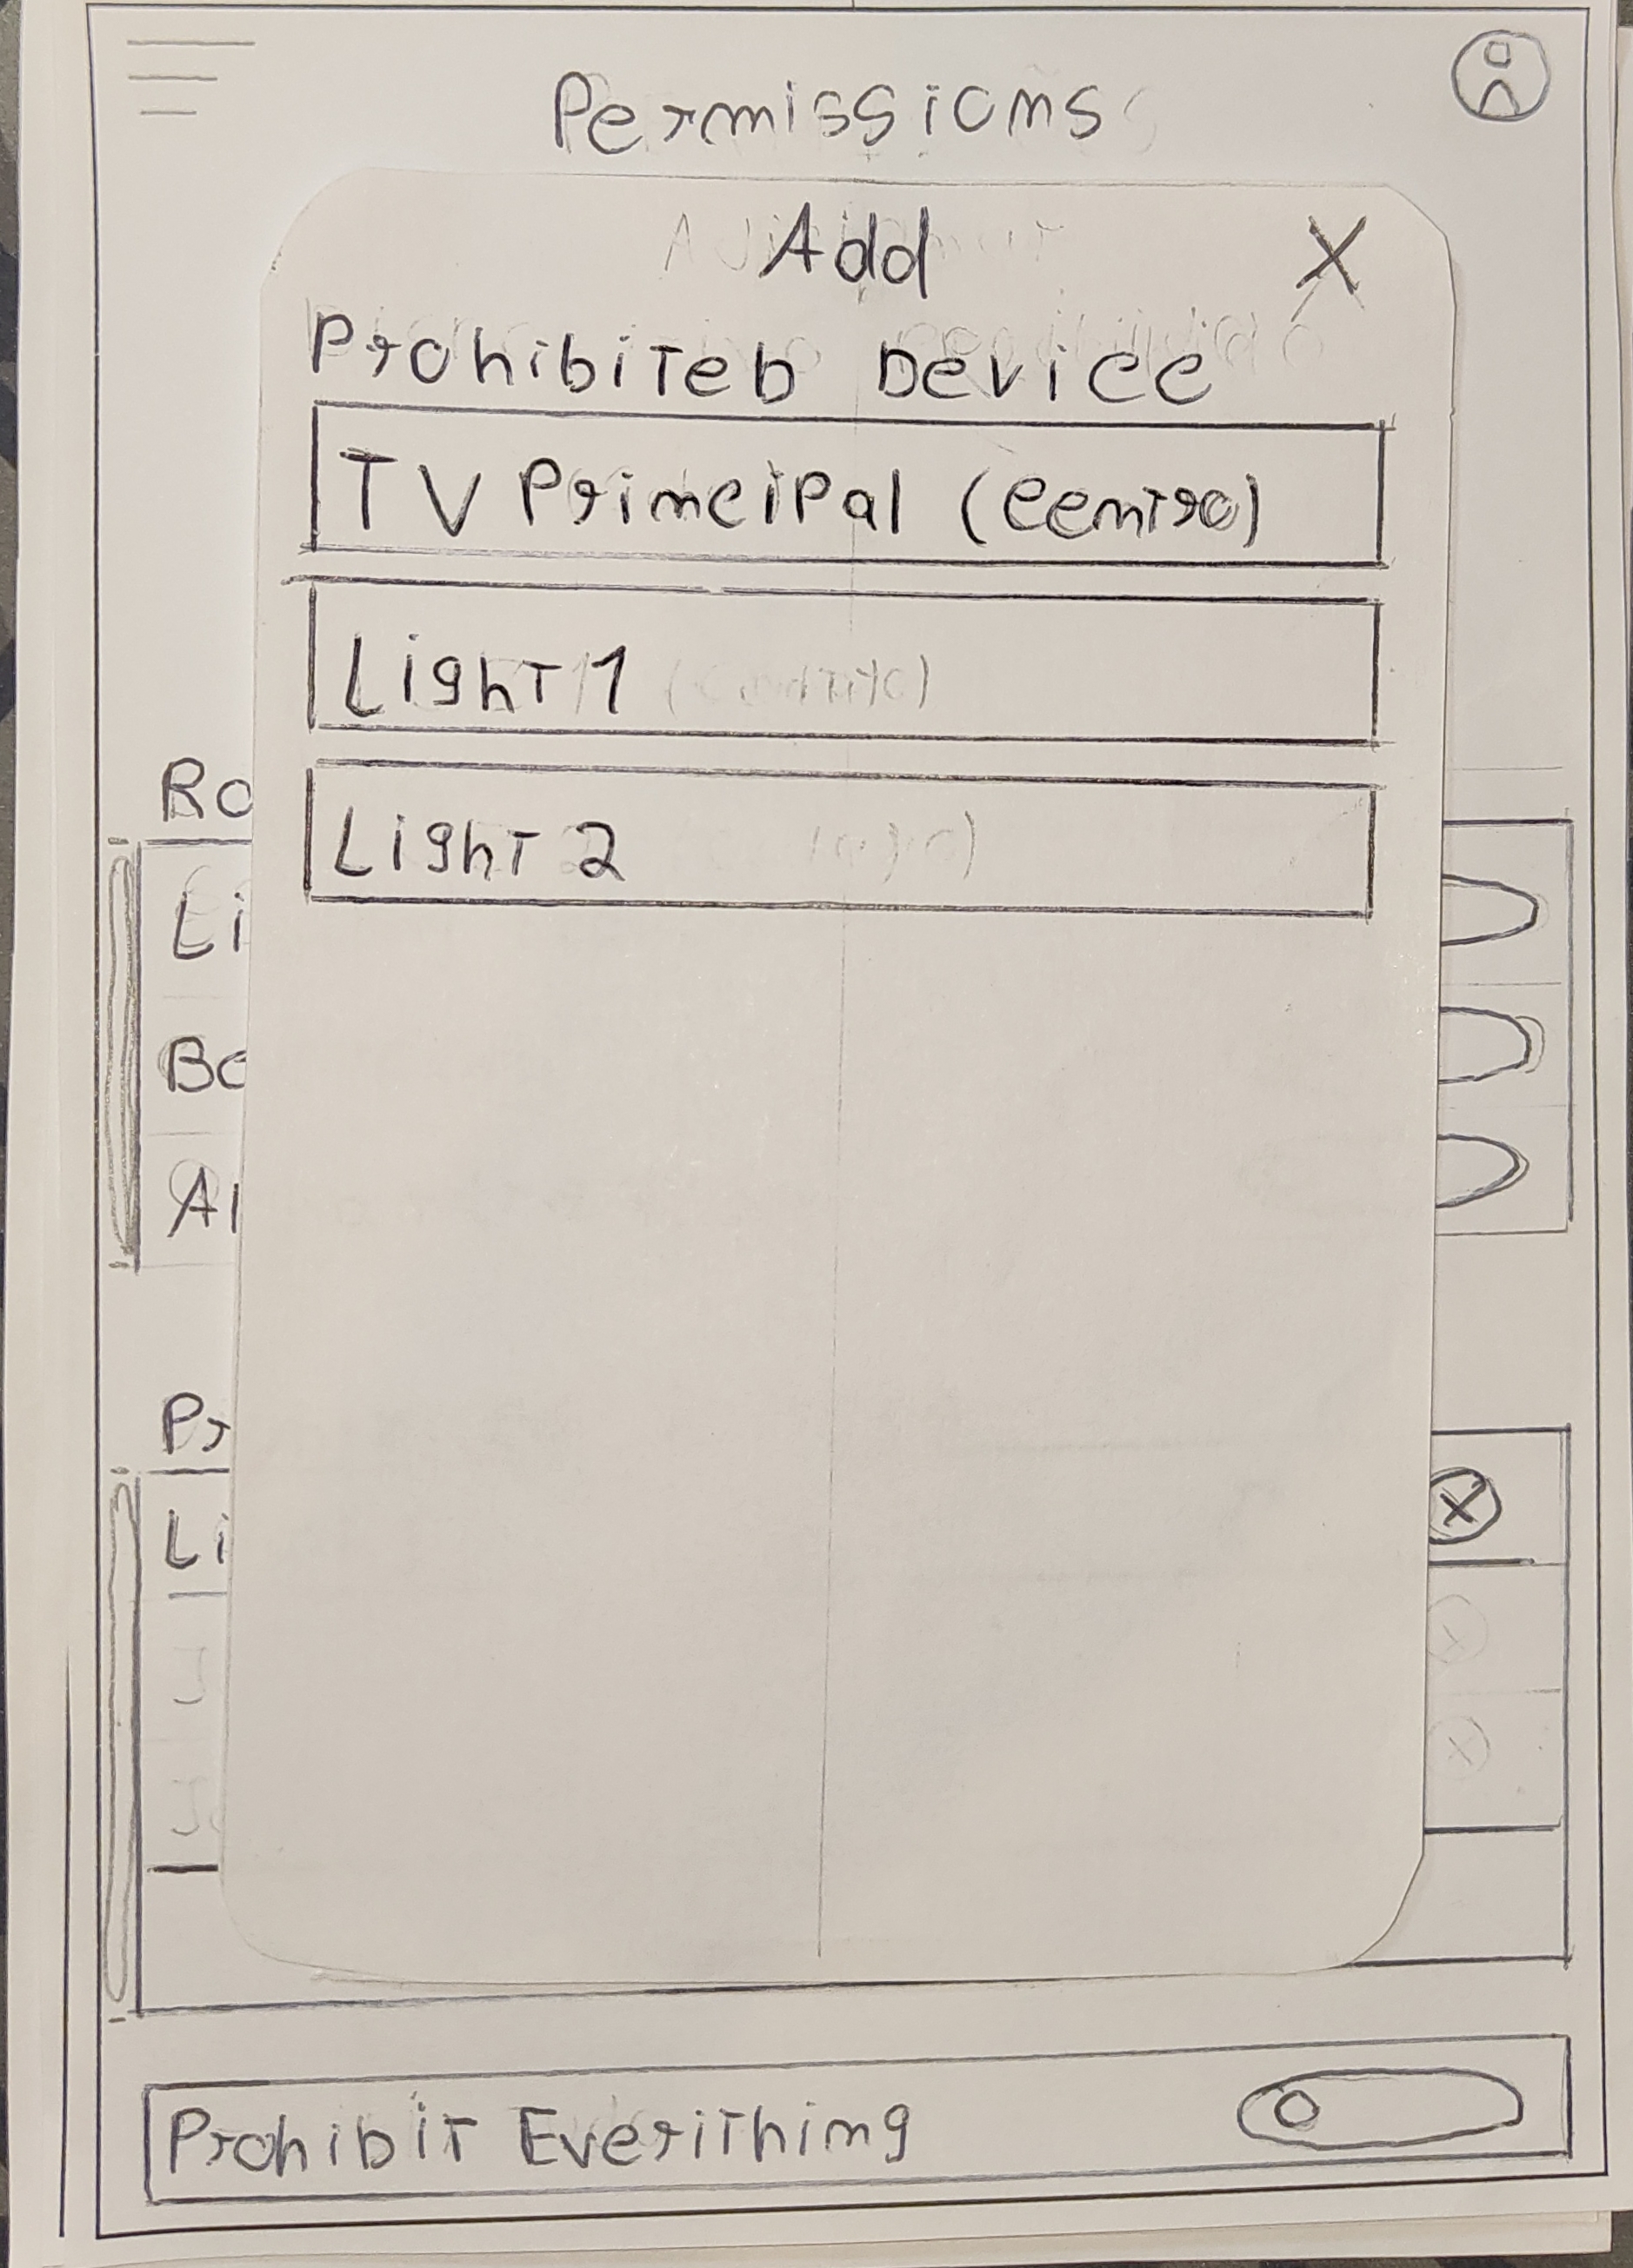 Permissions
Add
X
Prohibited Device
TV Principal (Centro)
Light 1
Light 2
Ro
Li
Be
Ai
Pr
Li
Prohibit Everithing